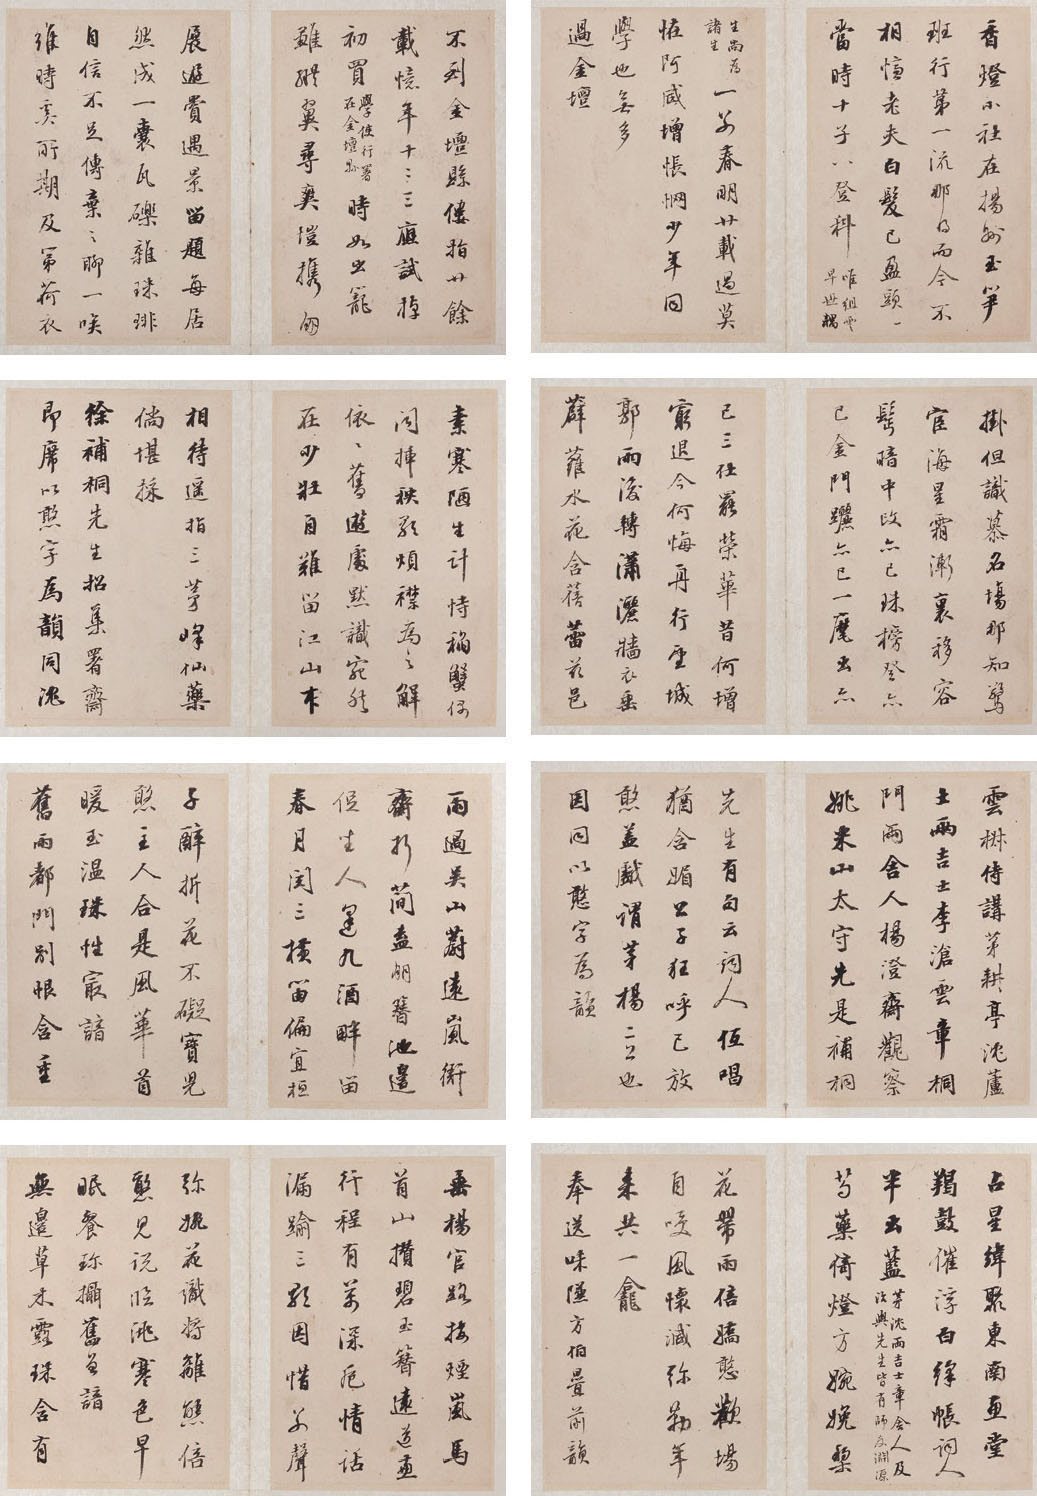 香燈小社在揚州玉筍
班行第一流那得而今不
相憶老夫白髮已盈頭一
當時十子八登科唯組雲早世耦
生尚為諸生一第春明廿載過莫
怪阿咸增悵惘少年同
學也無多
過金壇
不到金壇縣僂指廿餘
載憶年十二三應試掉
初買學使行署在金壇縣時如出籠
雖縱翼尋爽塏攜朋
展遊賞遇景留題每居
然成一囊瓦礫雜珠琲
自信不足傳棄之聊一唉
維時奚所期及第荷衣
掛但識慕名場那知驚
宦海星霜漸裏移容
髩暗中改亦已珠榜登亦
已金門躧亦已一麾出亦
已三仕罷榮華昔何增
窮退今何悔再行至城
郭雨後轉瀟灑牆衣垂
薜蘿水花含蓓蕾茲邑
素寒陋生計恃稻蟹偶
閒挿秧歌煩襟為之解
依依舊遊處默識宛然
在少壯自難留江山本
相待遙指三茅峰仙藥
倘堪採
徐補桐先生招集署齋
即席以憨字為韻同沈
雲椒侍講茅耕亭沈蘆
士兩吉士李滄雲章桐
門兩舍人楊澄齋觀察
姚米山太守先是補桐
先生有句云詞人低唱
猶含媚公子狂呼已放
憨蓋戲謂茅楊二公也
因同以憨字為韻
雨過吳山蔚遠嵐衙
齋折簡盍朋簪池邊
促坐人逢九酒畔留
春月閏三橫笛偏宜桓
子醉折花不礙寶兒
憨主人合是風華首
暖玉溫珠性最諳
舊雨都門別恨含重
占星緯聚東南畫堂
羯鼓催浮白絳帳詞人
半出藍茅沈兩吉士章舍人及汝輿先生皆有師友淵源
芍藥倚燈方婉娩梨
花帶雨倍嬌憨歡場
自笑風懷減弥勒年
來共一龕
奉送味隱方伯疊前韻
垂楊官路接煙嵐馬
首山攢碧玉簪遠道畫
行程有萬深巵情話
漏踰三歌因惜別聲
弥婉花識將離態倍
憨見說臨洮寒色早
眠餐珍攝舊曾諳
無邊草木露珠含有